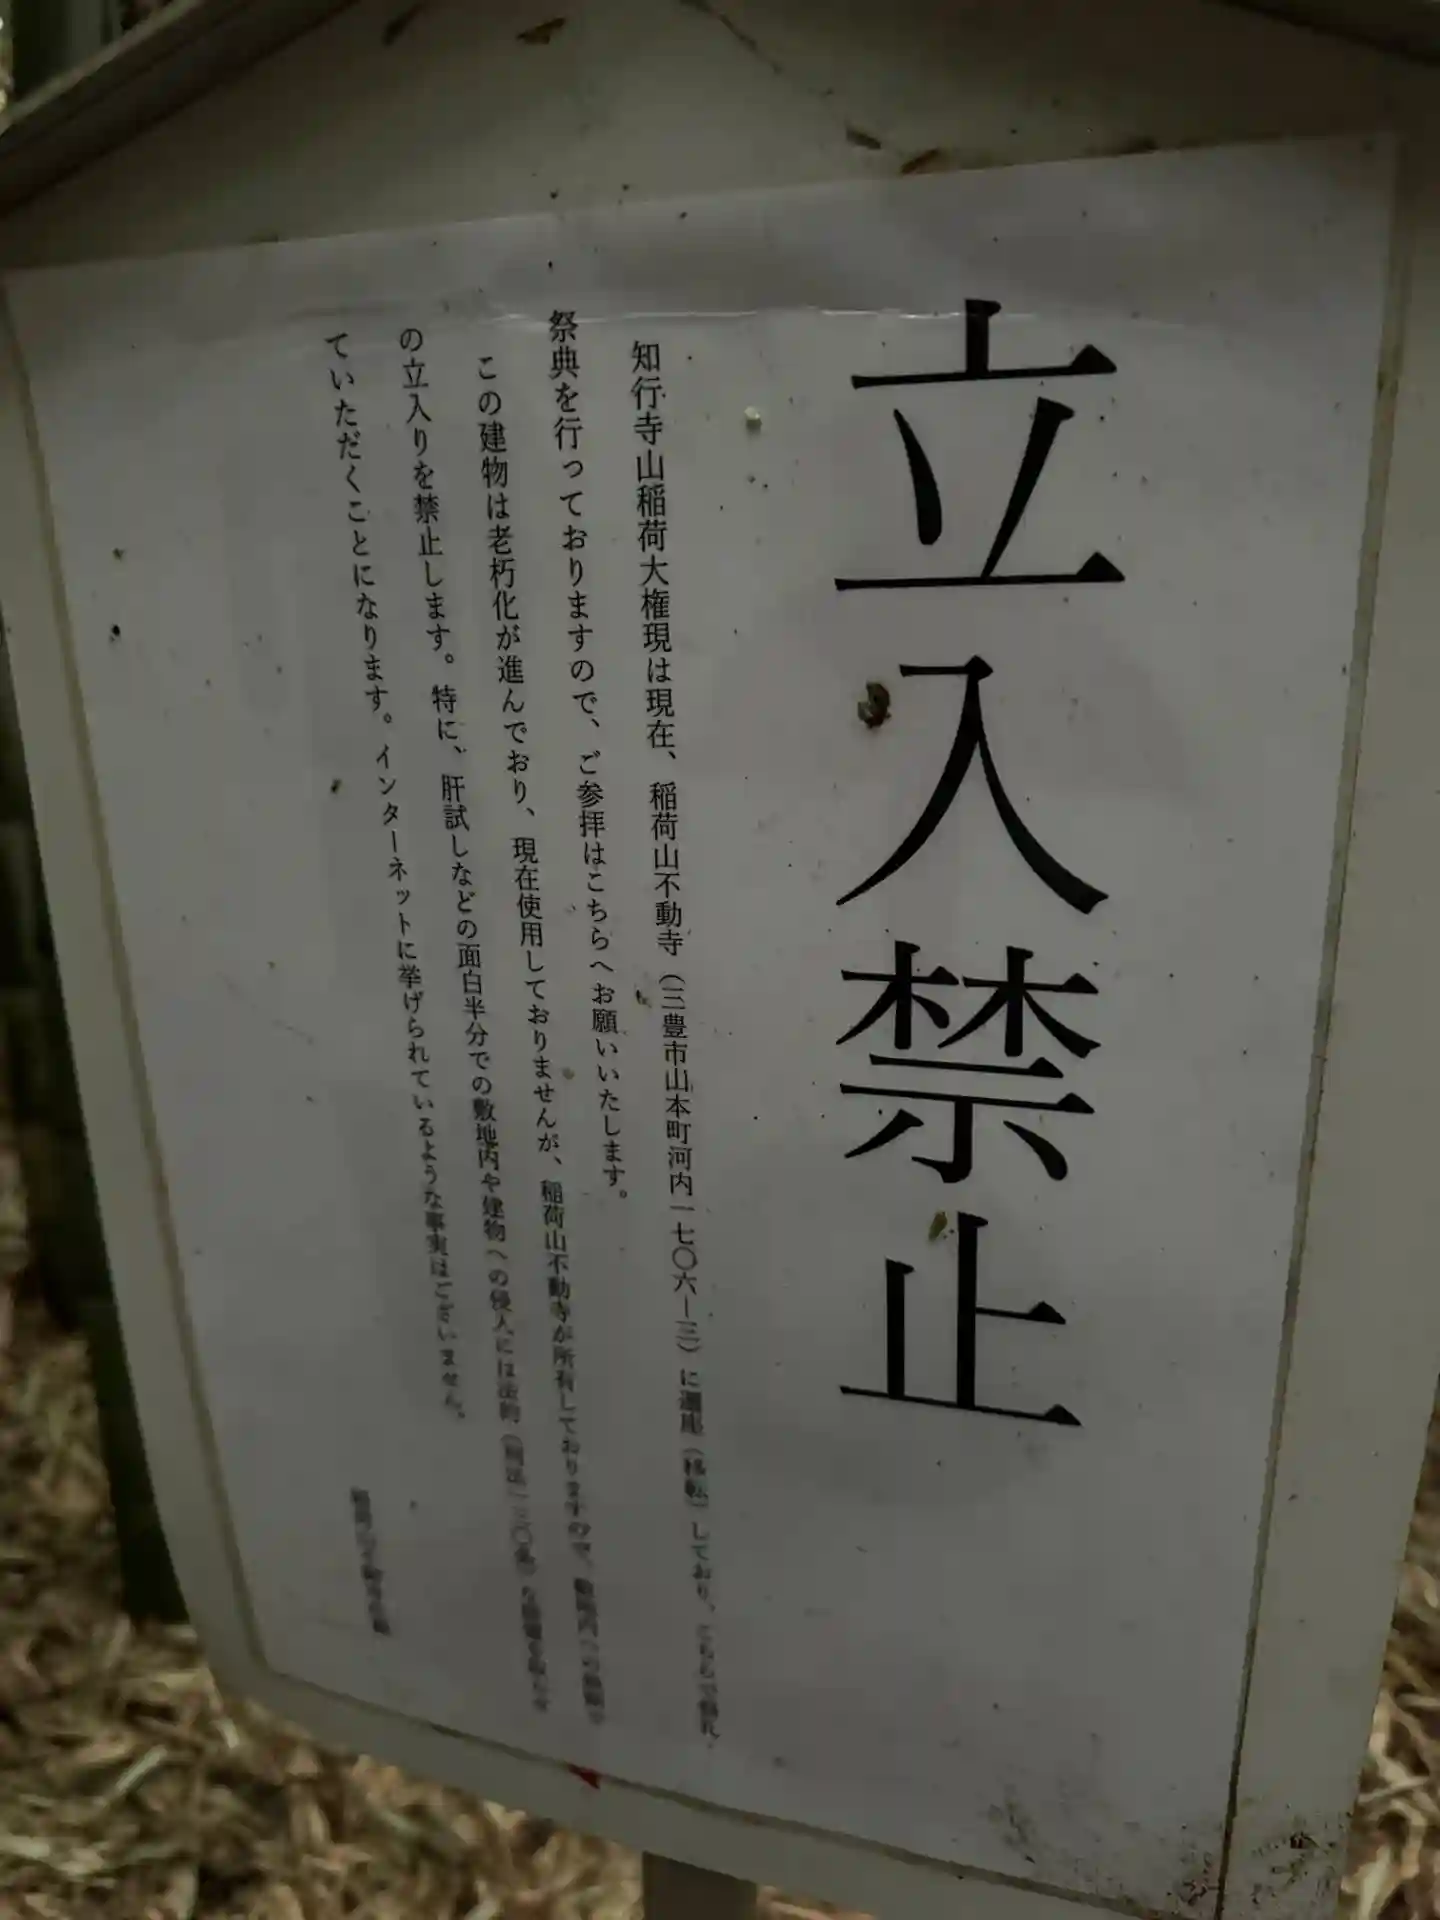 立入禁止
知行寺山稲荷大権現は現在、稲荷山不動寺(三豊市山本町河内一七〇六ー三)に遷座(移転)しており、こちらで
祭典を行っておりますので、ご参拝はこちらへお願いいたします。
この建物は老朽化が進んでおり、現在使用しておりませんが、稲荷山不動寺が所有しておりますので、
の立入りを禁止します。特に、肝試しなどの面白半分での敷地内や建物への侵入には法的
ていただくことになります。インターネットに挙げられているような事実はございません。